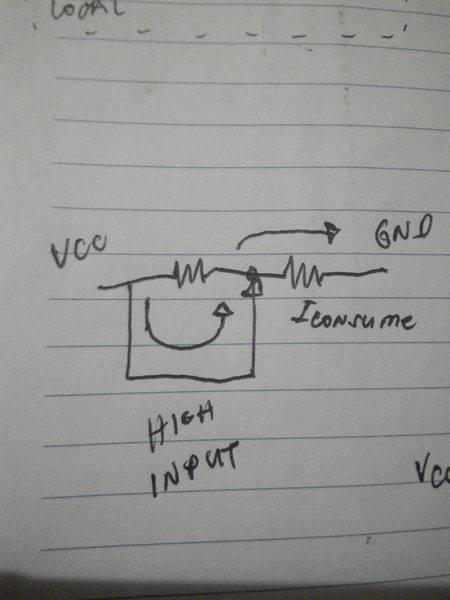 LOCAL
VCC
GND
ICONSUME
HIGH
INPUT
VCC